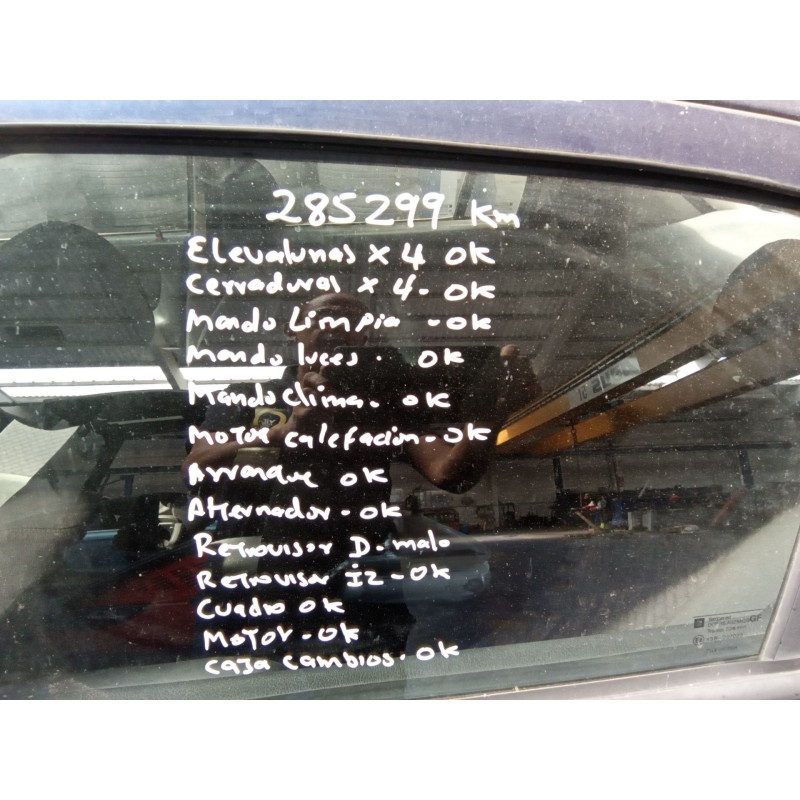 285299 Km
Elevalunas x 4 OK
Cerraduras x 4 - OK
Mando Limpia - OK
Mando luces . OK
Mando clima . OK
Motor calefacion - OK
Arranque OK
Alternador - OK
Retrovisor D. malo
Retrovisor iz - OK
Cuadro OK
Motor - OK
Caja cambios . OK
GF